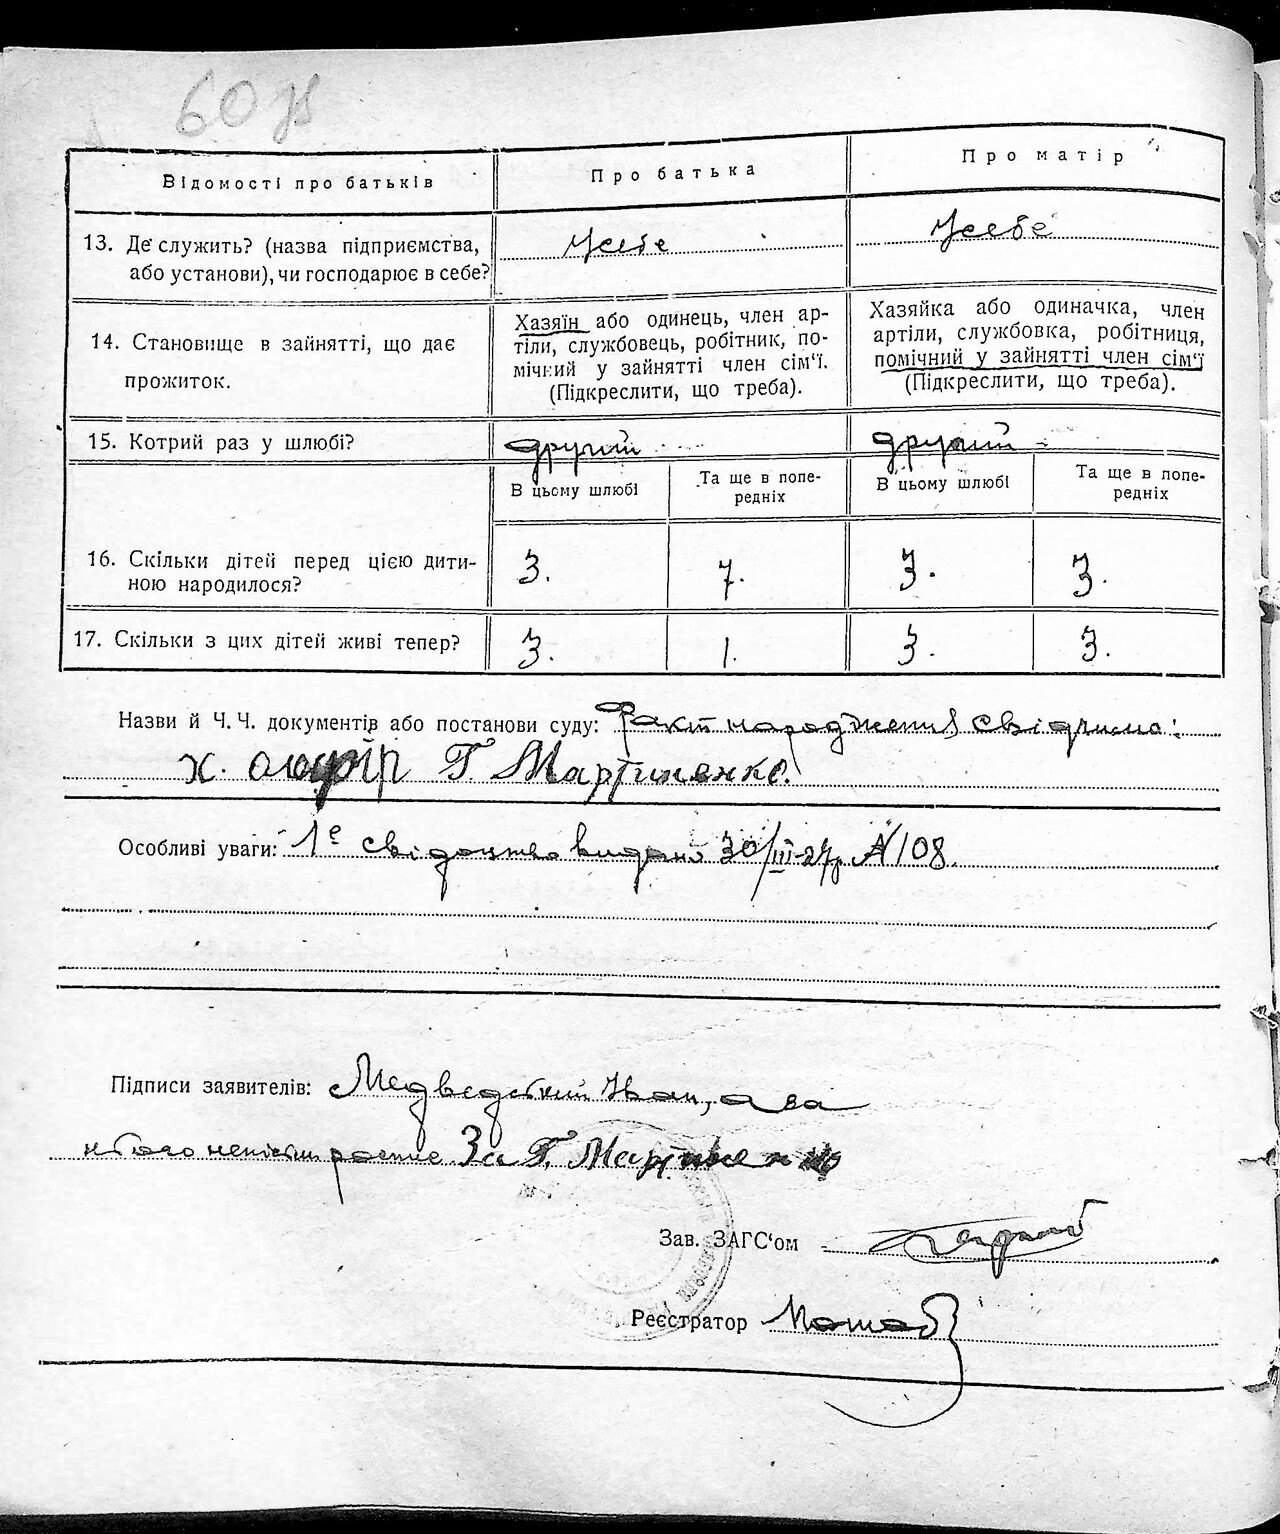 60 зв
Відомості про батьків
Про батька
Про матір
13. Де служить? (назва підприємства,
або установи), чи господарює в себе?
Усебе
Усебе
14. Становище в зайнятті, що дає
прожиток.
Хазяїн або одинець, член ар-
тіли, службовець, робітник, по-
мічний у зайнятті член сім'ї.
(Підкреслити, що треба).
Хазяйка або одиначка, член
артіли, службовка, робітниця,
помічний у зайнятті член сім'ї
(Підкреслити, що треба).
15. Котрий раз у шлюбі?
другий
другий
В цьому шлюбі
Та ще в попе-
редніх
В цьому шлюбі
Та ще в попе-
редніх
16. Скільки дітей перед цією дити-
ною народилося?
3.
7.
3.
3.
17. Скільки з цих дітей живі тепер?
3.
1.
3.
3.
Назви й Ч. Ч. документів або постанови суду: Факт народження свідчимо:
х. Г Мартиненко.
Особливі уваги: 1е свідоцтво видано 30/III-27р № 108.
Підписи заявителів: Медведський Іван, а за
нього неписьм роспис За Г. Мартиненко
Зав. ЗАГС'ом
Реєстратор